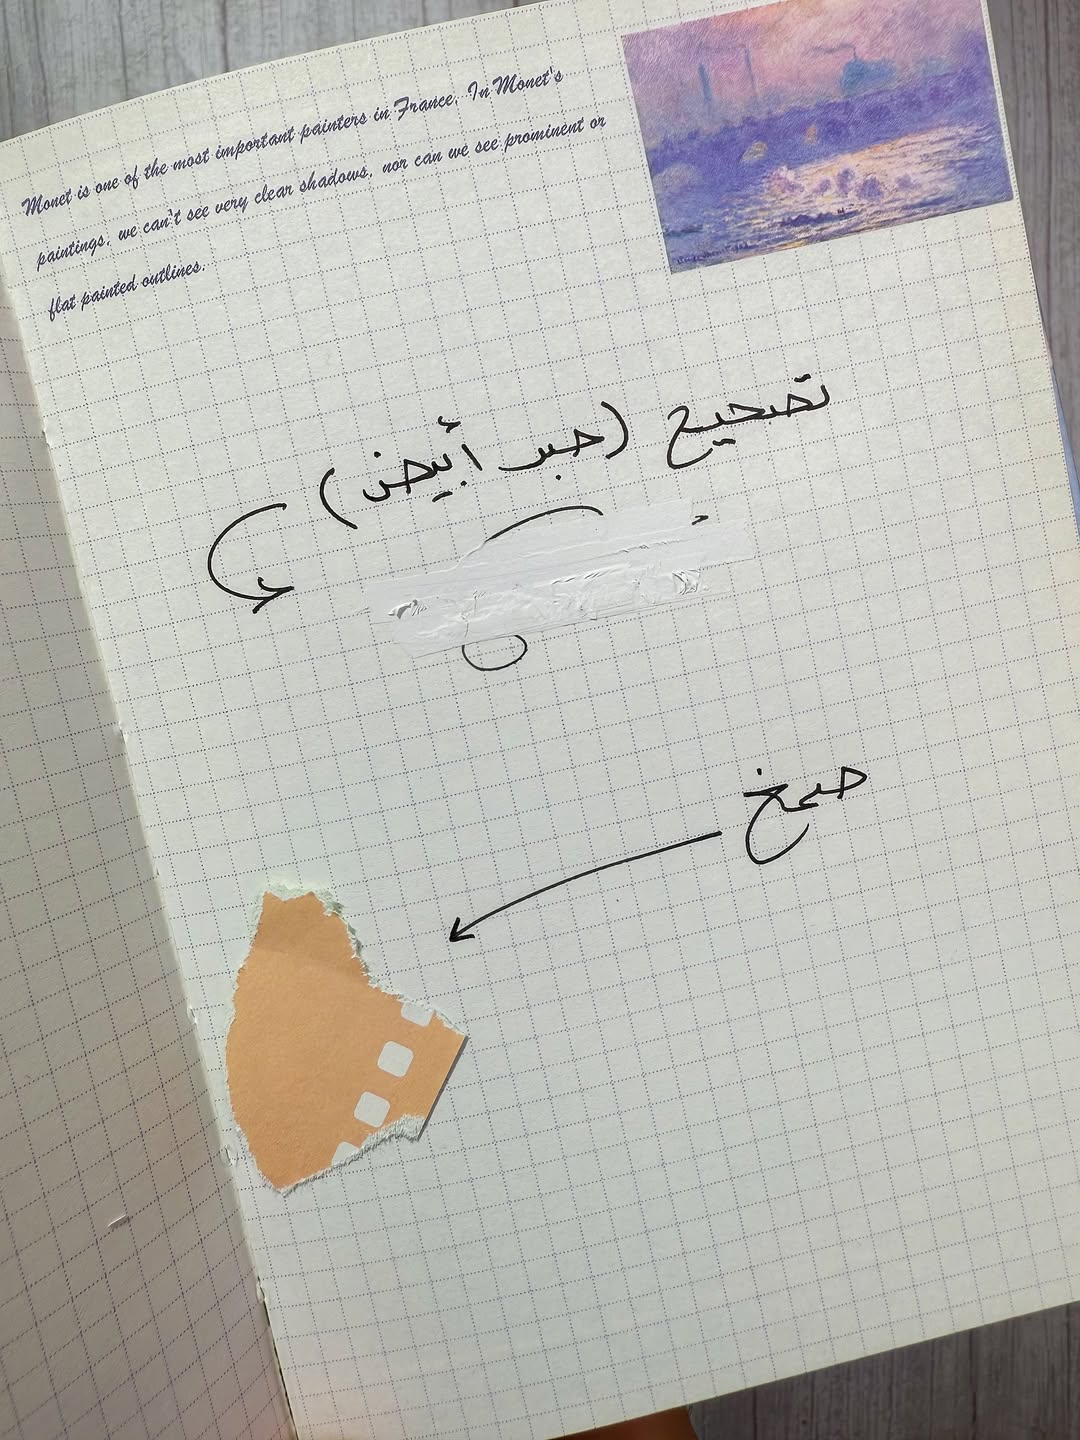 Monet is one of the most important painters in France. In Monet's
paintings, we can't see very clear shadows, nor can we see prominent or
flat painted outlines.
تصحيح (حبر أبيض)
صمغ